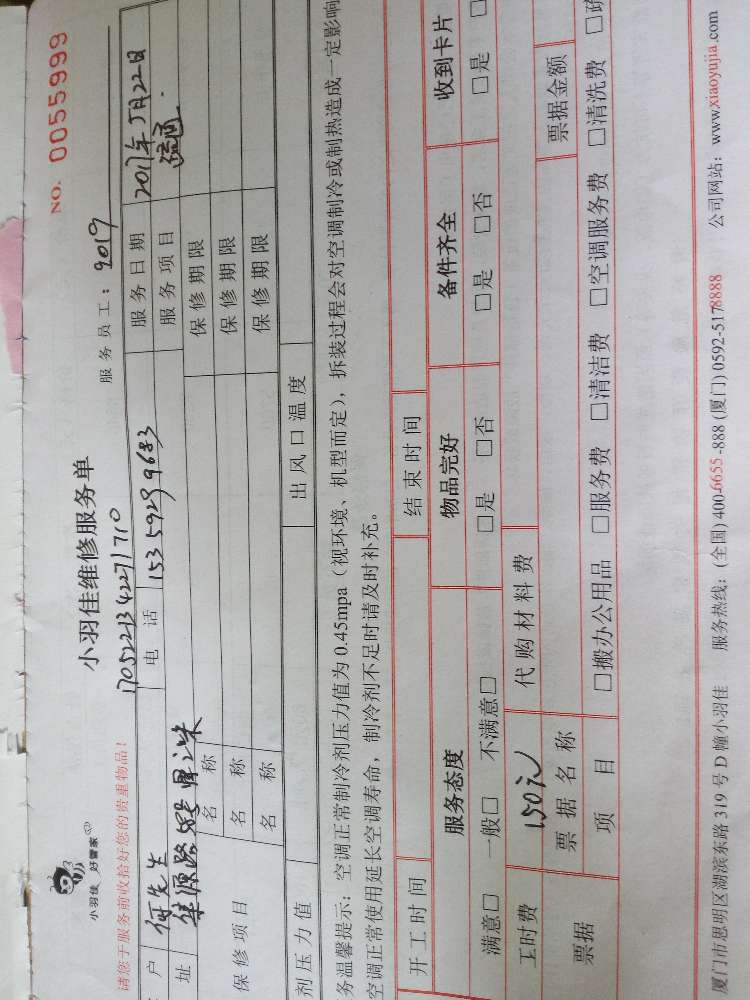 小羽佳 好管家
小羽佳维修服务单
NO. 0055999
请您于服务前收拾好您的贵重物品!
1705221342271710
服务员工: 9019
户 何先生 电话 15359299683 服务日期 2017年5月22日
址 华源路 服务项目 疏通
保修项目 名称 保修期限
名称 保修期限
名称 保修期限
剂压力值 出风口温度
务温馨提示:空调正常制冷剂压力值为0.45mpa(视环境、机型而定),拆装过程会对空调制冷或制热造成一定影响
空调正常使用延长空调寿命,制冷剂不足时请及时补充。
开工时间 结束时间
服务态度 物品完好 备件齐全 收到卡片
满意□ 一般□ 不满意□ □是 □否 □是 □否 □是 □
工时费 150元 代购材料费
票据 票据名称 票据金额
项目 □搬办公用品 □服务费 □清洁费 □空调服务费 □清洗费 □疏
厦门市思明区湖滨东路319号D幢小羽佳 服务热线:(全国)400-6655-888 (厦门)0592-5178888 公司网站:www.xiaoyujia.com